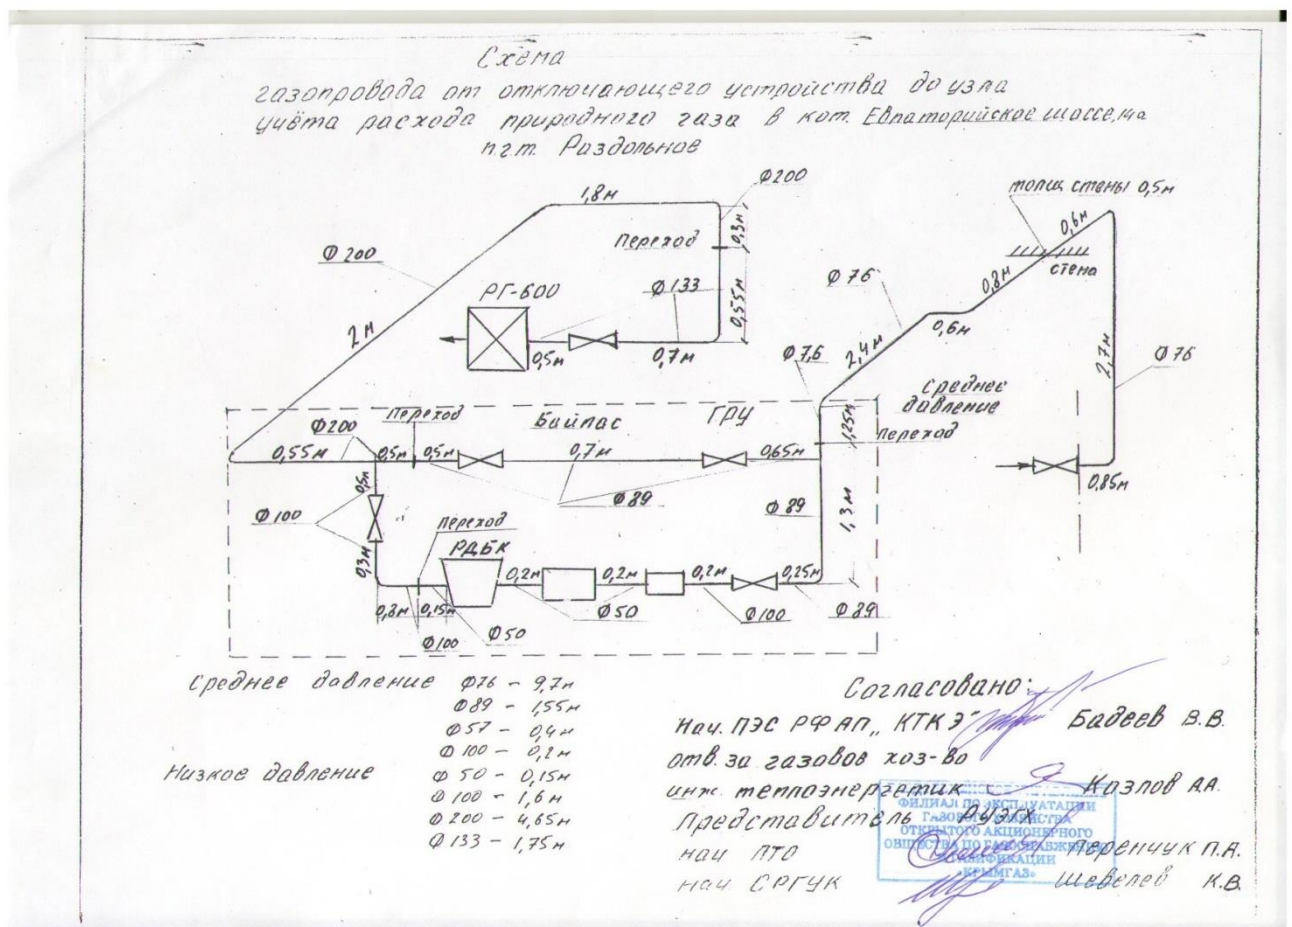 Схема
газопровода от отключающего устройства до узла
учёта расхода природного газа в кот. Евпаторийское шоссе,
п.г.т. Раздольное
1,8м
Ф200
толщ стены 0,5м
0,6м
Переход
0,3м
Ф 200
стена
0,8м
Ф 76
РГ-600
Ф 133
0,55м
0,6м
2м
2,7м
0,5м
0,7м
2,4м
Ф7,6
Ф 76
среднее
давление
Переход
Байпас
ГРУ
1,25м
Переход
Ф200
0,55м
0,5м
0,5м
0,7м
0,65м
0,85м
0,5м
Ф 89
Ф 89
1,3м
Ф 100
Переход
РДБК
0,3м
0,2м
0,2м
0,2м
0,25м
0,8м
0,15м
Ф100
Ф 50
Ф50
Ф100
Ф89
Среднее давление Ф76 - 9,7м
Ф89 - 1,55м
Ф57 - 0,4м
Ф 100 - 0,2м
Низкое давление Ф 50 - 0,15м
Ф 100 - 1,6м
Ф 200 - 4,65м
Ф 133 - 1,75м
Согласовано:
Нач. ПЭС РФ АП „КТКЭ" Бадеев В.В.
отв. за газовое хоз-во
инж. теплоэнергетик Козлов А.А.
Представитель РУЭГХ
нач ПТО Перенчук П.А.
нач СРГУК Шевелев К.В.
ФИЛИАЛ ПО ЭКСПЛУАТАЦИИ
ГАЗОВОГО ХОЗЯЙСТВА
ОТКРЫТОГО АКЦИОНЕРНОГО
ОБЩЕСТВА ПО ГАЗОСНАБЖЕНИЮ
ГАЗИФИКАЦИИ
«КРЫМГАЗ»